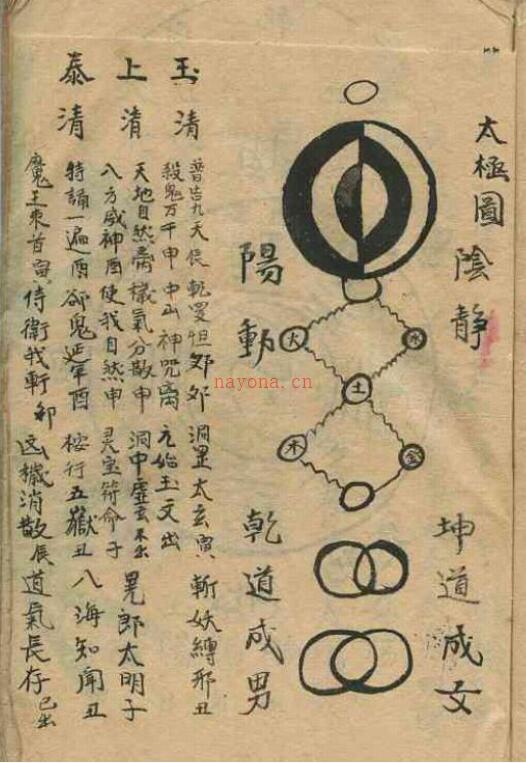 太極圖
陰靜
坤道成女
火
水
土
木
金
陽動
乾道成男
玉清
上清
泰清
普告九天 乾罗怛 洞罡太玄寅 斬妖縛邪丑
殺鬼万千申 中山神咒离 元始玉文出
天地自然 穢氣分散申 洞中虚玄 晃郎太明子
八方威神酉 使我自然申 灵宝符命子
持誦一遍酉 卻鬼延年酉 桉行五嶽丑 八海知聞丑
魔王束首寅 侍衛我軒卯 凶穢消散辰 道氣長存 已出
nayona.cn